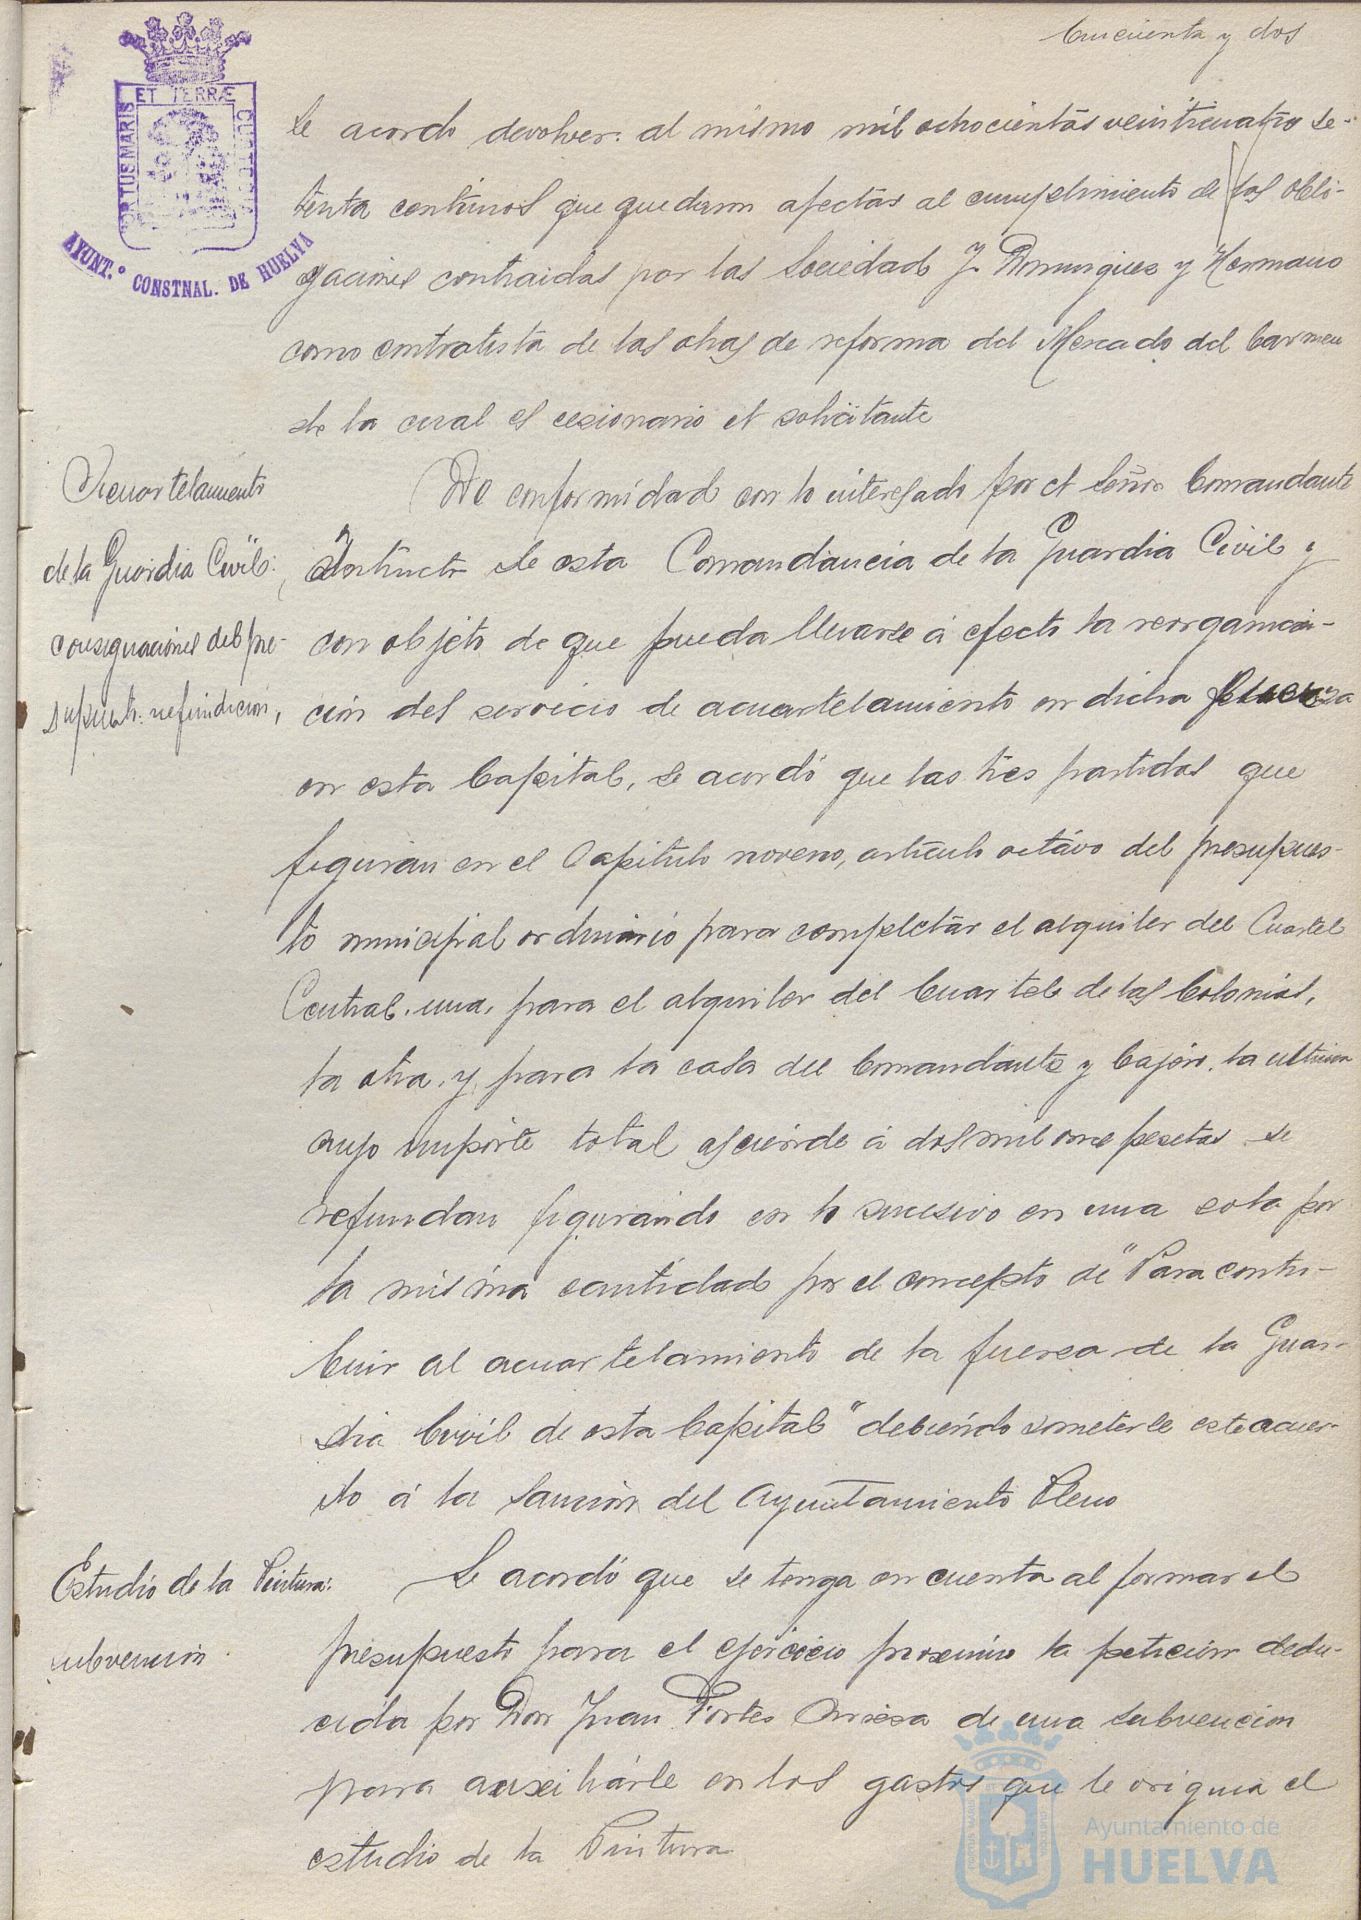 Cincuenta y dos
PORTUS MARIS ET TERRÆ CUSTODIA
AYUNT.º CONSTNAL. DE HUELVA
Se acordo devolver al mismo mil ochocientas veinticuatro se-
tenta centimos que quedaron afectas al cumplimiento de las obli-
gaciones contraidas por las Sociedad J. Dominguez y Hermano
como contratista de las obras de reforma del Mercado del Carmen
de la cual es cesionario el solicitante
Acuartelamiento
de la Guardia Civil:
consignaciones del pre-
supuesto: refundicion,
De conformidad con lo interesado por el Señor Comandante
de esta Comandancia de la Guardia Civil y
con objeto de que pueda llevarse á efecto la reorganiza-
ción del servicio de acuartelamiento en dicha fuerza
en esta Capital, se acordó que las tres partidas que
figuran en el Capitulo noveno, articulo octavo del presupues-
to municipal ordinario para completar el alquiler del Cuartel
Central, una, para el alquiler del Cuartel de las Colonias,
la otra, y para la casa del Comandante y Cajero, la ultima
cuyo importe total asciende á dos mil once pesetas se
refundan figurando en lo sucesivo en una sola por
la misma cantidad por el concepto de "Para contri-
buir al acuartelamiento de la fuerza de la Guar-
dia Civil de esta Capital" debiendo someterse este acuer-
do á la sanción del Ayuntamiento Pleno
Estudio de la Pintura:
subvencion
Se acordó que se tenga en cuenta al formar el
presupuesto para el ejercicio proximo la peticion dedu-
cida por Don Juan Portes de una subvencion
para auxiliarle en los gastos que le origina el
estudio de la Pintura
Ayuntamiento de
HUELVA